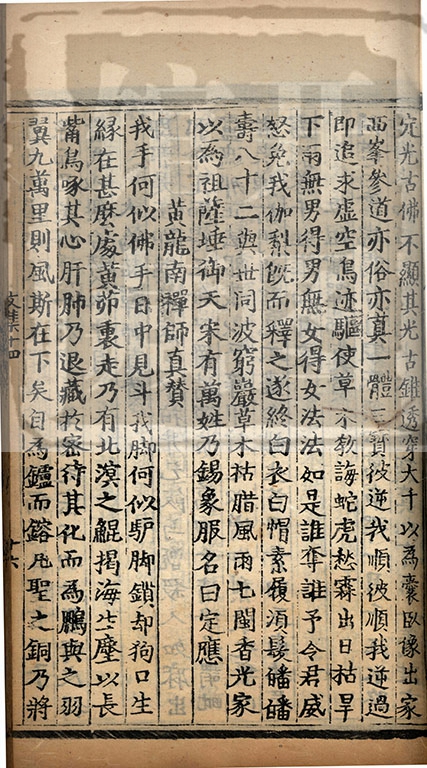 定光古佛不顯其光古錐透穿大千以為囊臥像出家
西峯參道亦俗亦真一體三寶彼逆我順彼順我逆過
即追求虛空鳥迹驅使草木教誨蛇虎愁霖出日枯旱
下雨無男得男無女得女法法如是誰奪誰予令君威
怒免我伽梨既而釋之遂終白衣白帽素履須髮皤皤
壽八十二與世同波窮巖草木枯腊風雨七閩香光家
以為祖薩埵御天宋有萬姓乃錫象服名曰定應
黃龍南禪師真贊
我手何似佛手日中見斗我脚何似驴脚鎖却狗口生
緣在甚麼處黃茆裏走乃有北溟之鯤揭海生塵以長
觜鳥啄其心肝肺乃退藏於密待其化而為鵬與之羽
翼九萬里則風斯在下矣自為鑪而鎔凡聖之銅乃將
文集十四